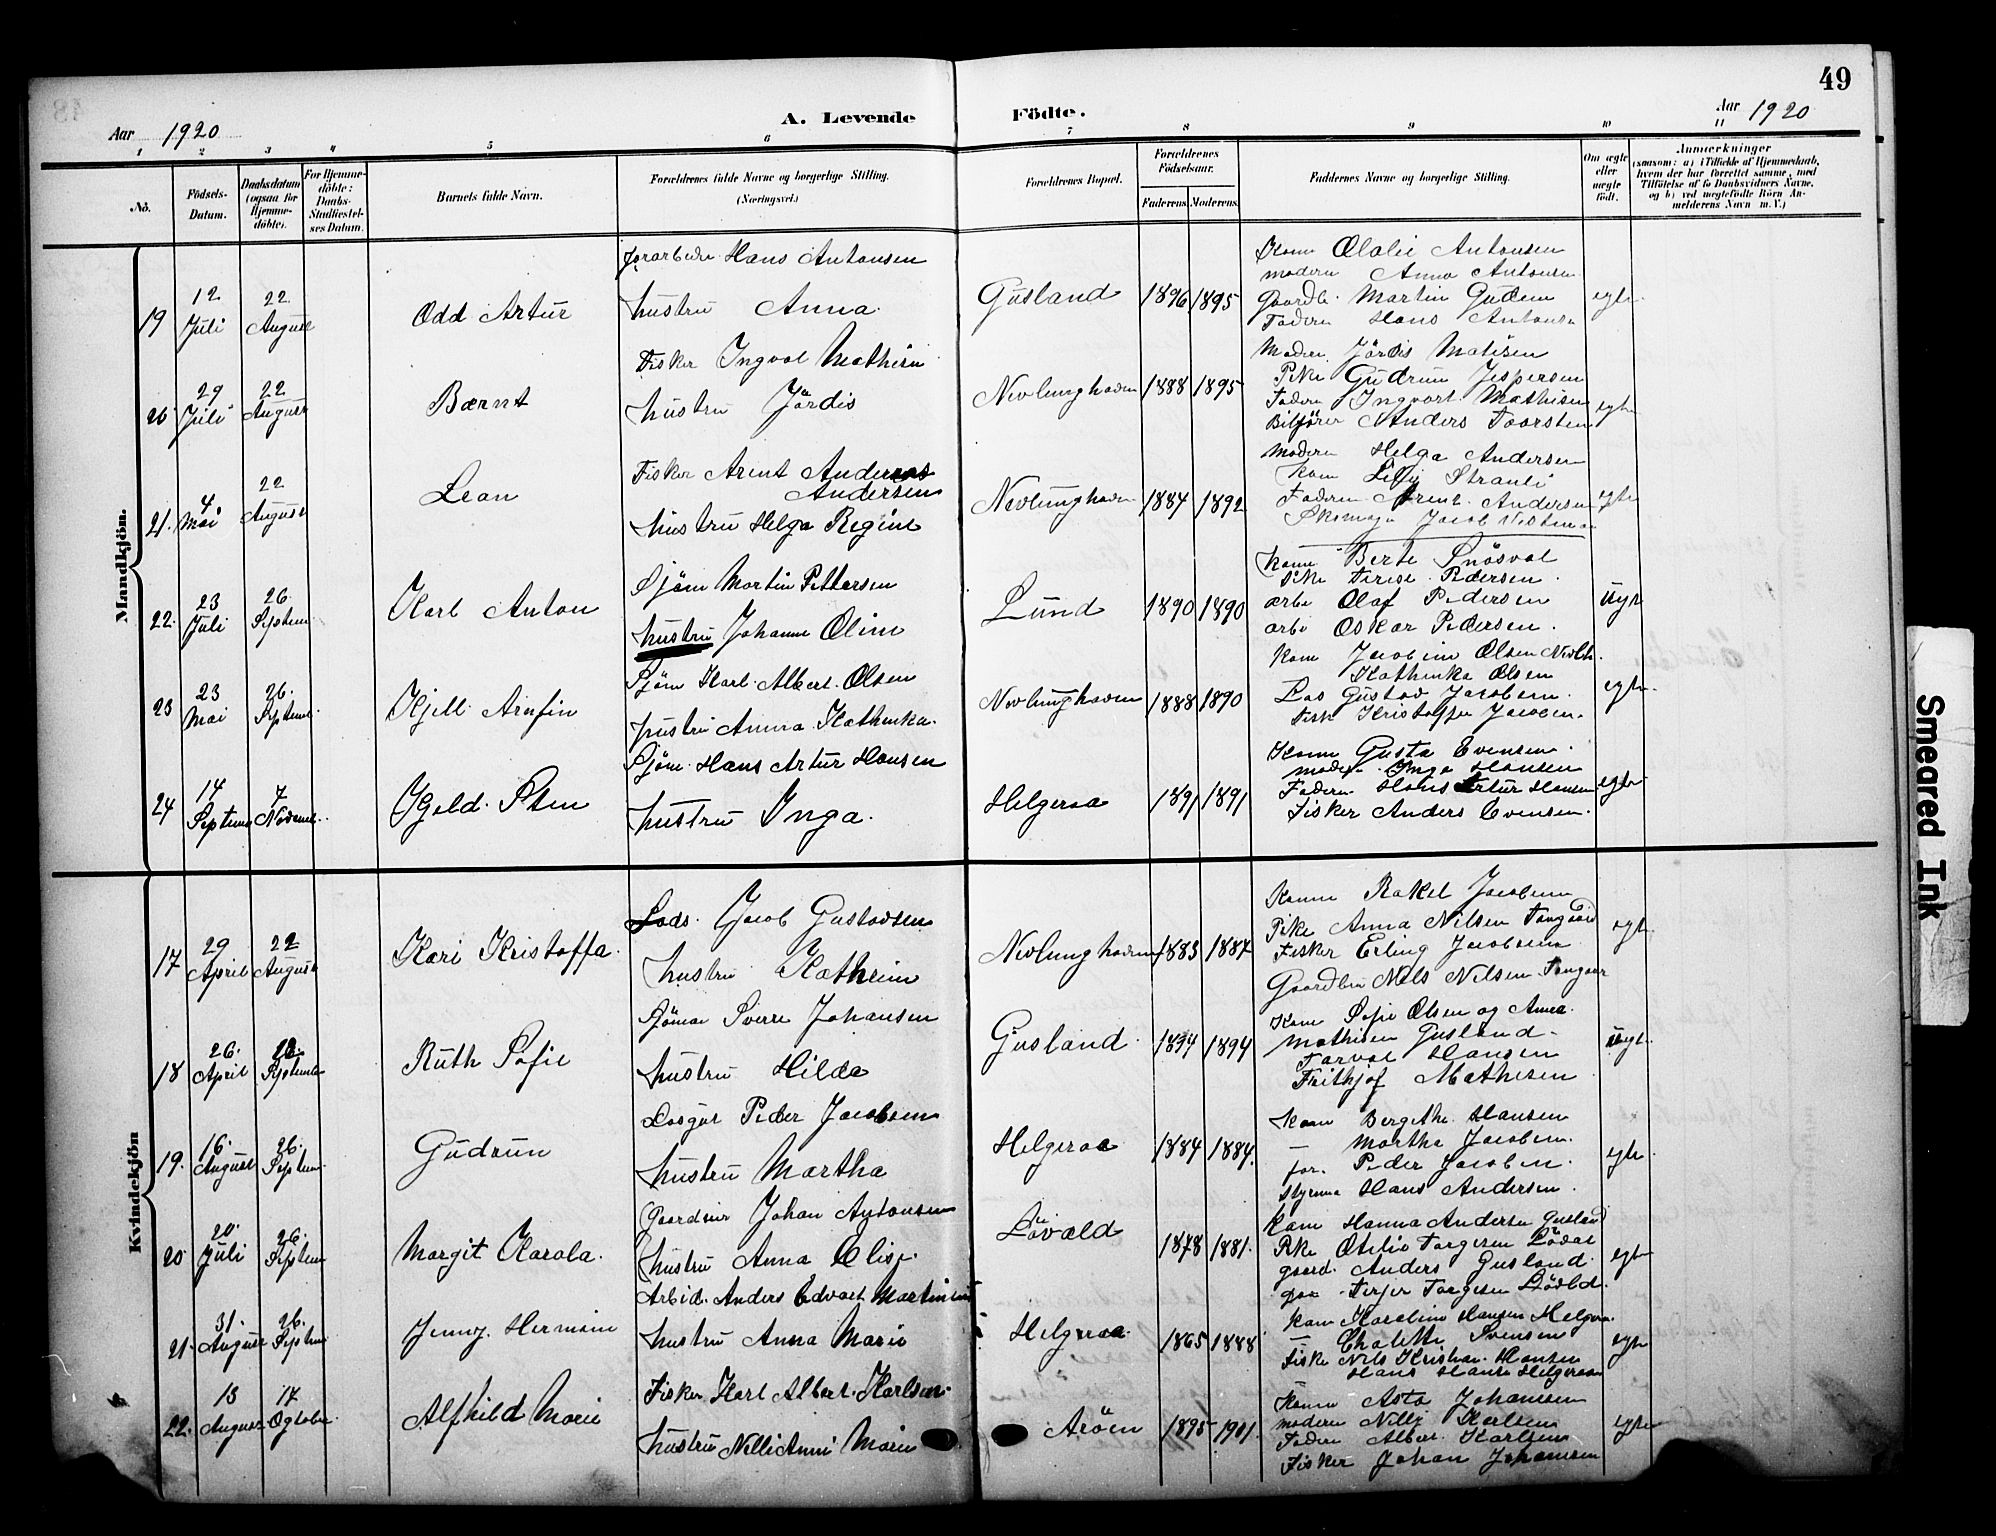 49
Aar 1920
A. Levende Födte.
Aar 1920
1 2 3 4 5 6 7 8 9 10 11
No.
Födsels-
Datum.
Daabsdatum
(ogsaa for
Hjemme-
döbte).
For Hjemme-
döbte:
Daabs-
Stadfæstel-
ses Datum.
Barnets fulde Navn.
Forældrenes fulde Navne og borgerlige Stilling.
(Næringsvei.)
Forældrenes Bopæl.
Forældrenes
Födselsaar.
Faderens. Moderens.
Faddernes Navne og borgerlige Stilling.
Om ægte
eller
uægte
födt.
Anmærkninger
(saasom: a) i Tilfælde af Hjemmedaab,
hvem der har forrettet samme, med
Tilföielse af to Daabsvidners Navne,
og b) ved uægtefödte Börn An-
melderens Navn m. V.)
Mandkjön.
19
12 Juli
22 August
Odd Artur
Hans Antonsen
hustru Anna
Gusland
1896 1895
Kone Olalie Antonsen
modern Anna Antonsen
Gaardb. Martin Gudem
Fadern Hans Antonsen
egte
20
29 Juli
22 August
Bærnt
Fisker Ingval Mathisen
hustru Jördis
Nevlunghavn
1888 1895
Modern Jördis Matisen
Pike Gudrun Jespersen
Fadern Ingvart Mathisen
Bilförer Anders Taarsten
egte
21.
4 Mai
22 August
Lean
Fisker Arent Andersen
hustru Helga Regine
Nevlunghavn
1884 1892
Modern Helga Andersen
Kone
Fadern Arent Andersen
Skomager Jacob
egte
22.
23 Juli
26 Septem
Karl Anton
Sjöm Martin Pettersen
hustru Johanne Oline
Lund
1890 1890
Kone Berte
Pike Terese Pedersen
arbe Olaf Pedersen
arbe Oskar Pedersen.
uegt
23
23 Mai
26. Septem
Kjell Arnfin
Sjöm Karl Albert Olsen
hustru Anna Kathinka.
Nevlunghaven
1888 1890
Kone Jacobine Olsen Nevlh.
Kathinka Olsen
Los Gustav Jacobsen.
Fisk Kristoffer Jacobsen.
egte
24
14 Septem
7 Novem
Kjeld Sten
Sjöm. Hans Artur Hansen
hustru Inga.
Helgeraa
1891 1891
Kone Gusta Evensen.
modern Inga Hansen
Fadern Hans Artur Hansen
Fisker Anders Evensen.
egte
Kvindekjön
17
29 April
22 August
Kari Kristoffa.
Lods. Jacob Gustavsen
hustru Kathrine
Nevlunghaven
1883 1887
Kone Rakel Jacobsen
Pike Anna Nilsen
Fisker Erling Jacobsen
Gaardbru Nils Nilsen
egt.
18
26. April
Septembe
Ruth Sofie
Sjöman Sverre Johansen
hustru Hilda
Gusland
1894 1894
Kone Sofie Olsen og Anna
Mathisen Gusland
Torval Hansen
Frithjof Mathisen
19.
16. August
26. Septem
Gudrun
Losgut Peder Jacobsen
hustru Martha
Helgeraa
1884 1884.
Kone Bergithe Hansen
— Martha Jacobsen.
far. Peder Jacobsen.
Styrman Hans Andersen.
egte.
20
20. Juli
26. Septem
Margit Karola.
Johan Antonsen
hustru Anna Elise
Lövald
1878 1881.
Kone Hanna Andersen Gusland
Pike Otelie Torgersen
gaard. Anders Gusland.
Terjer Torgersen
egte
21.
31. August
26. Septem
Jenny Hermine
Arbid. Anders Edvart Martinius
hustru Anna Marie
Helgeraa
1865 1888
Kone Karoline Hansen Helgeraa
— Charlotte Svensen
Fiske Nils Kristian Hansen
Hans Hansen Helgeraa
egte
22.
13 August
17 Ogtober
Alfhild Marie
Fisker Karl Albert Karlsen
hustru Nelli Anni Marie
Aröen
1895 1901.
Kone Asta Johansen
modern Nilli Karlsen
Fadern Albert Karlsen
Fisker Johan Johansen
egte
Smeared Ink